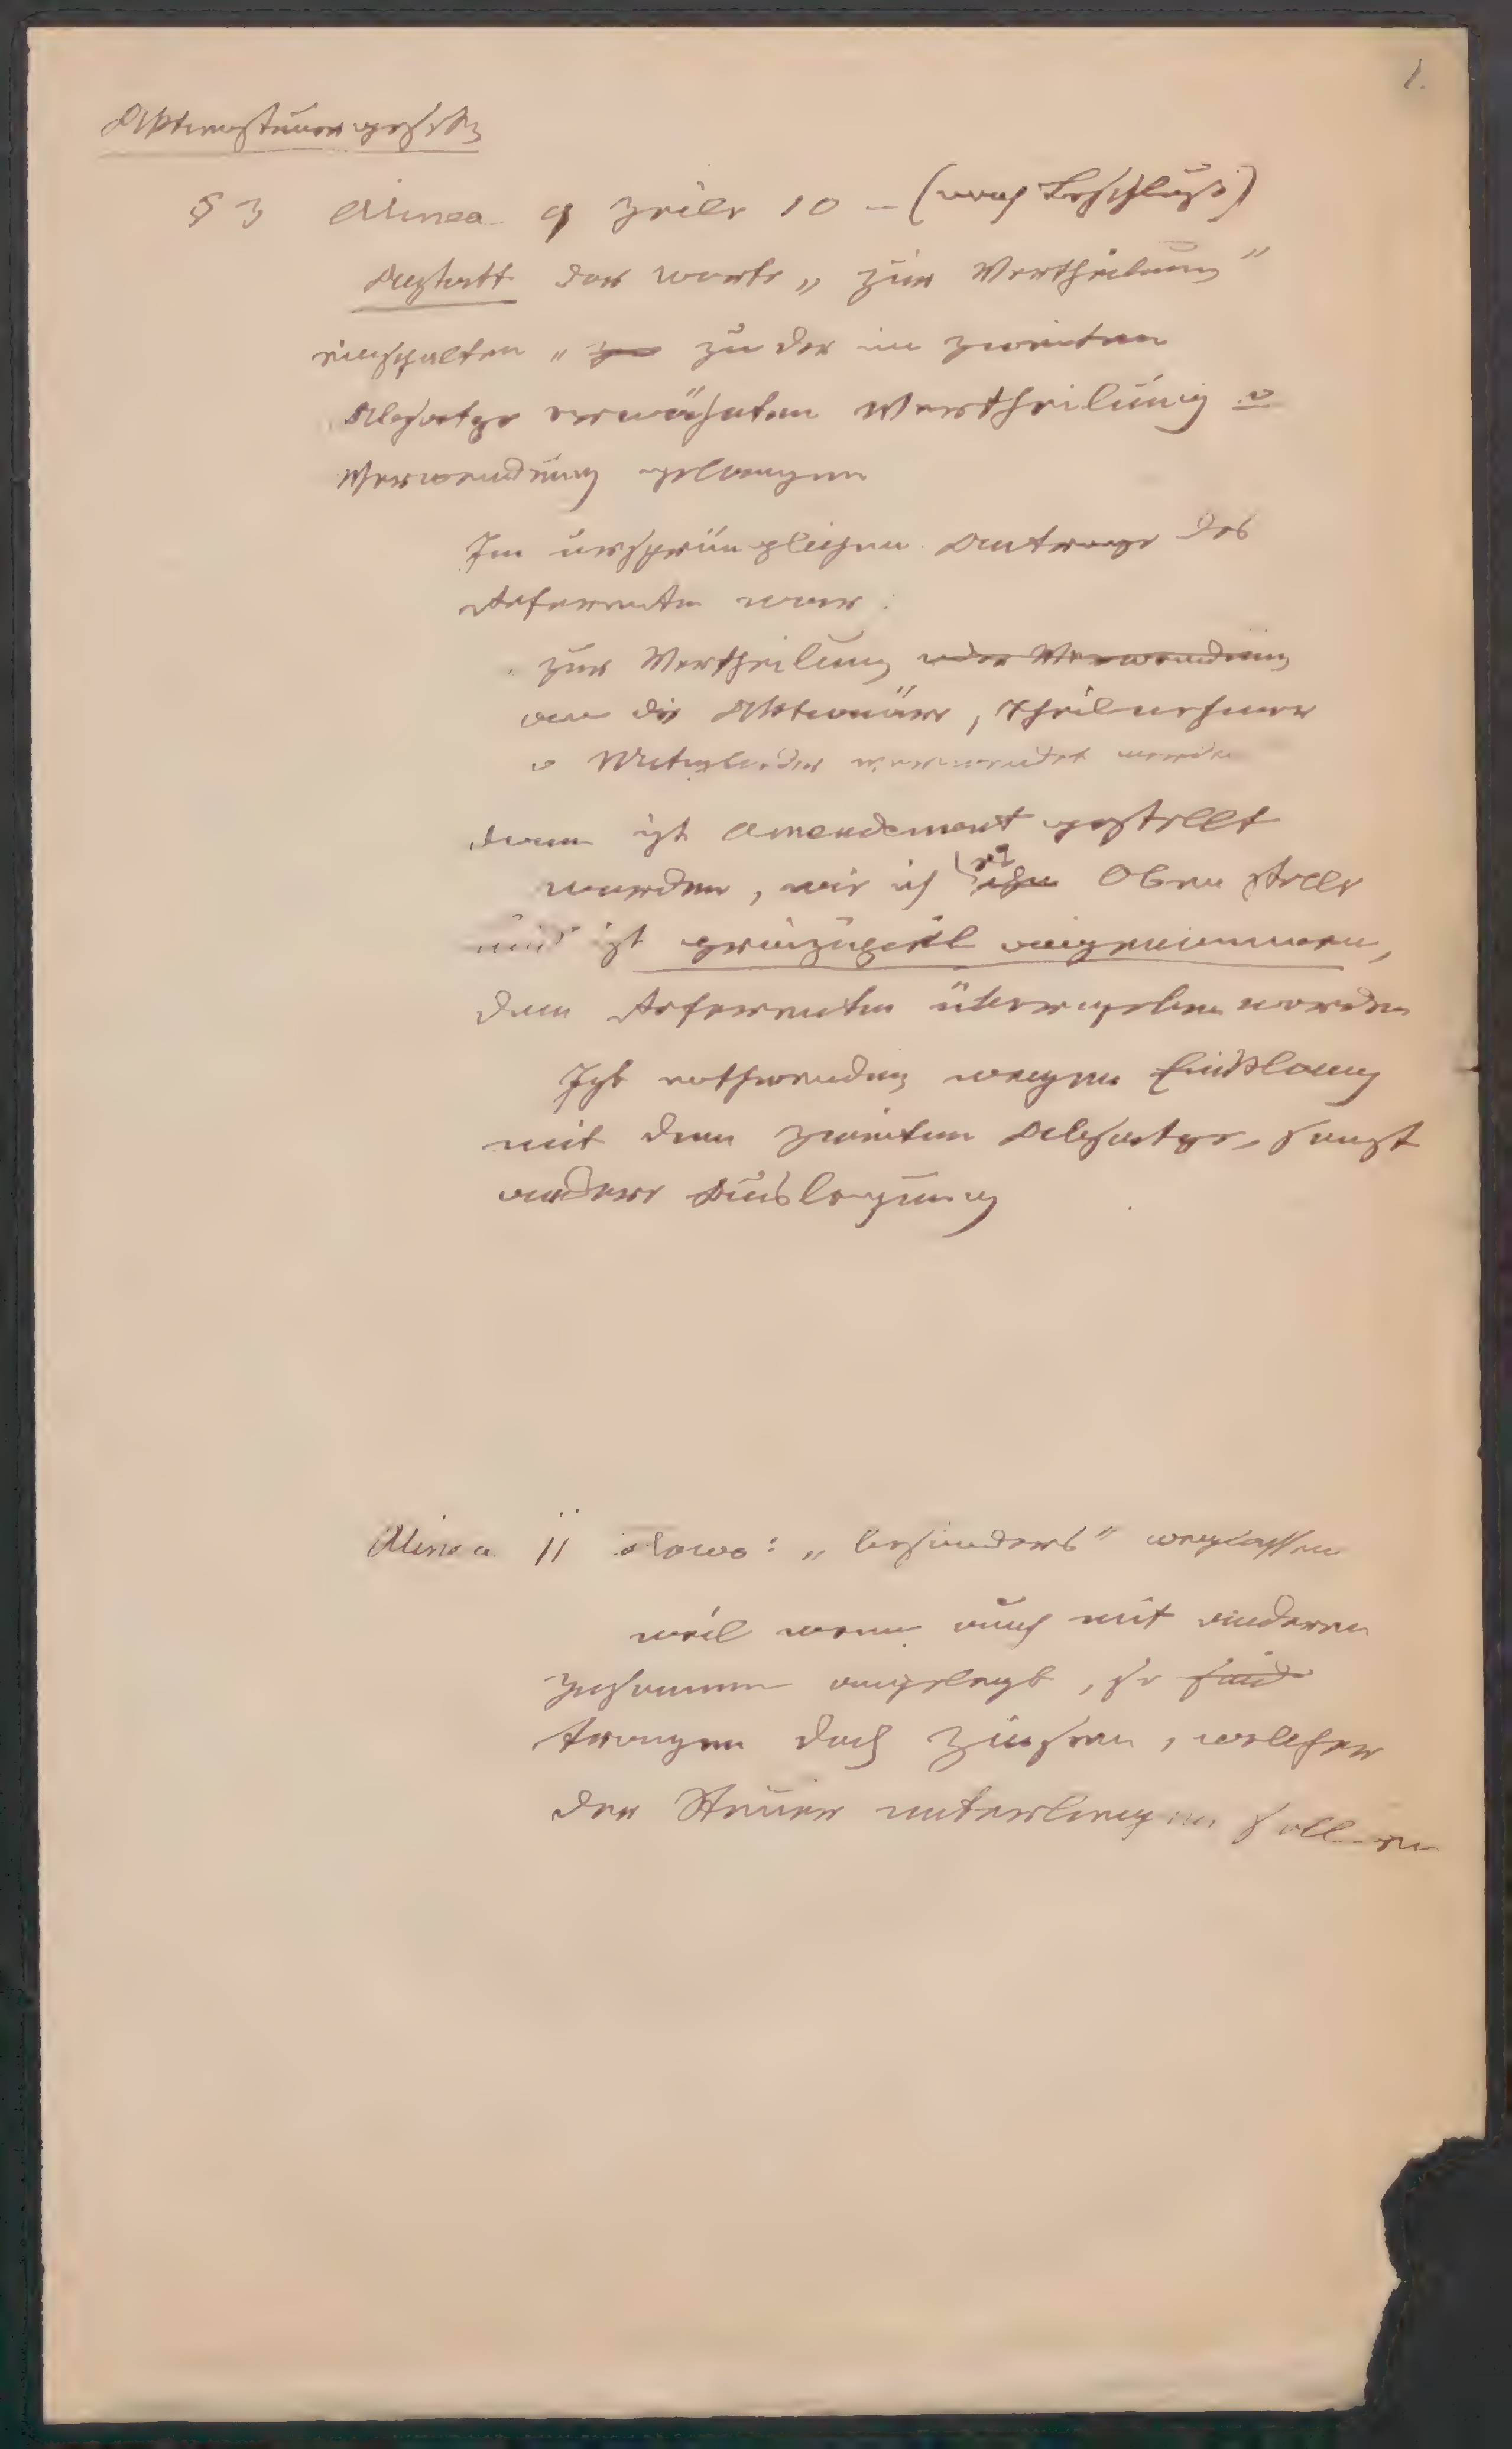 1.
Aktiensteuergesetz
§ 3 Alinea 9 Zeile 10 – (nach Beschluß)
Anstatt der Worte „zur Vertheilung"
einschalten „zu der im zweiten
Absatze erwähnten Vertheilung u
Verwendung gelangen
Im ursprünglichen Antrage des
Referenten war:
zur Vertheilung oder Verwendung
an die Aktionäre, Theilnehmer
u Mitglieder verwendet werden
dann ist Amendement gestellt
worden, wie ich es oben stelle
und ist prinzipiell angenommen,
dem Referenten übergeben worden
Ist nothwendig wegen Einklang
mit dem zweiten Absatze, sonst
andere Auslegung
Alinea 11 : „besonders" weglassen
weil wenn auch mit anderen
zusammen angelegt, so sind
tragen doch Zinsen, welche
der Steuer unterliegen sollen